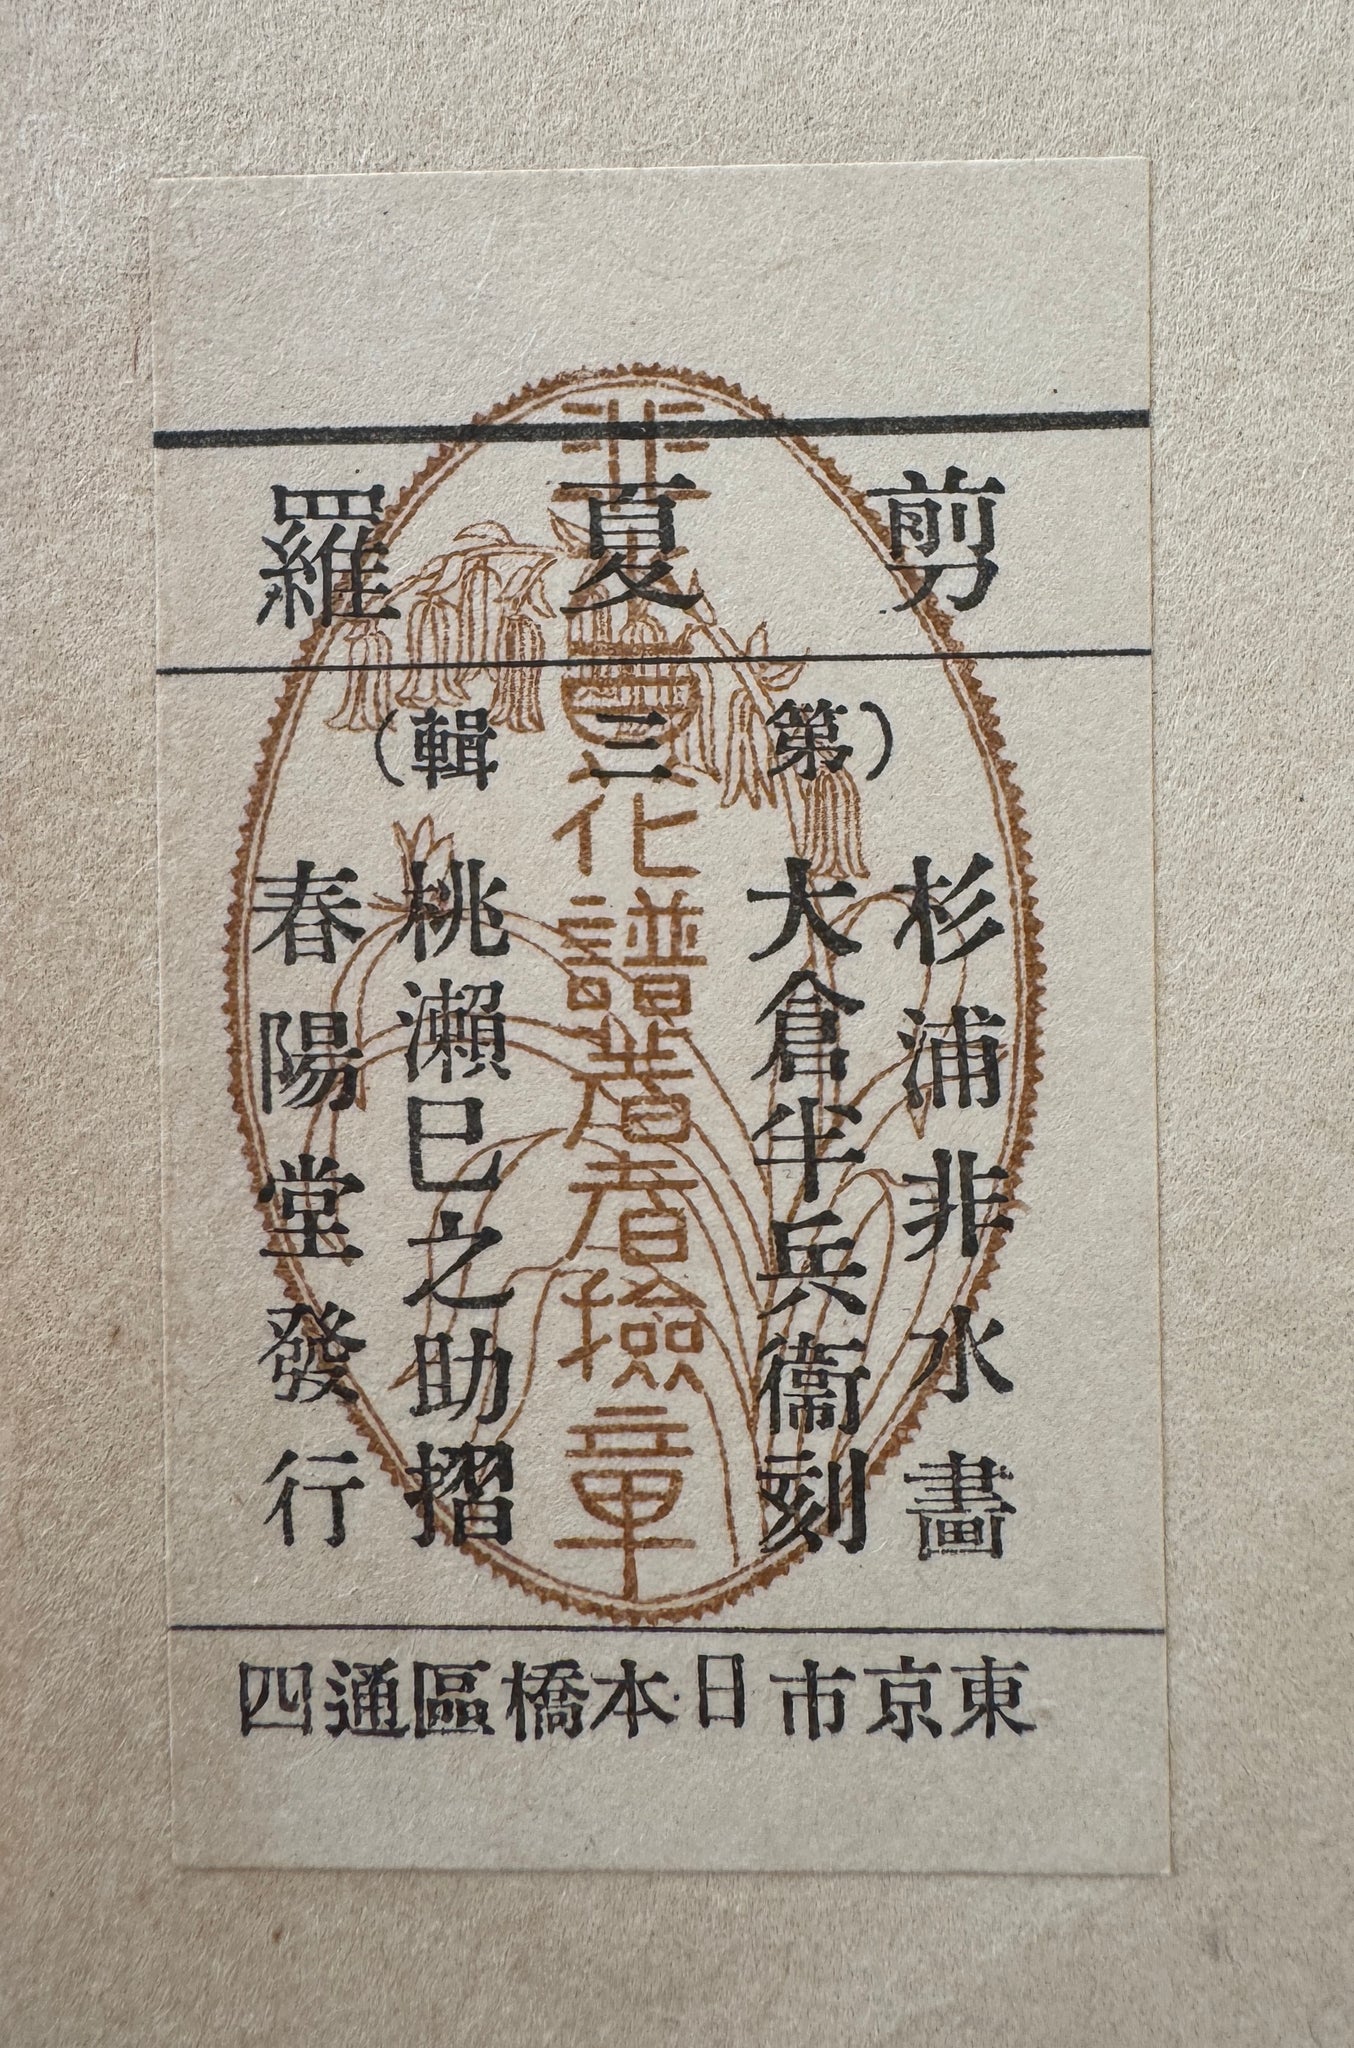 剪夏羅
(第三輯)
杉浦非水畫
大倉半兵衞刻
桃瀨巳之助摺
春陽堂發行
東京市日本橋區通四
非水百花譜著者撿章